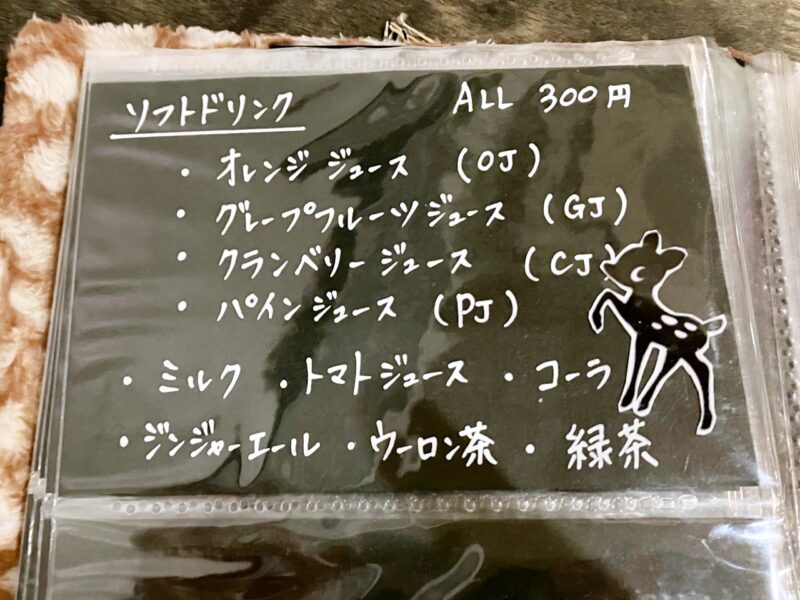 ソフトドリンク ALL 300円
・オレンジジュース (OJ)
・グレープフルーツジュース (GJ)
・クランベリージュース (CJ)
・パインジュース (PJ)
・ミルク ・トマトジュース ・コーラ
・ジンジャーエール ・ウーロン茶 ・緑茶